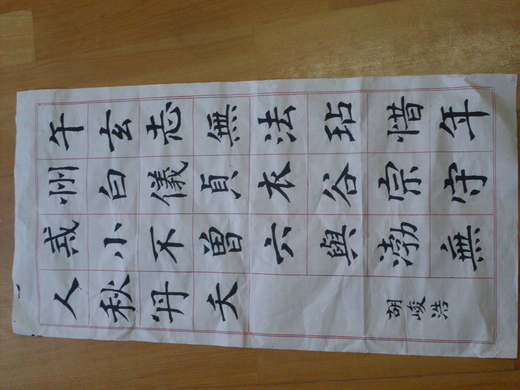 午玄志無法玷惜年
州白儀貞衣谷宗守
戒小不曾六與渤無
人秋丹夭
胡峻浩